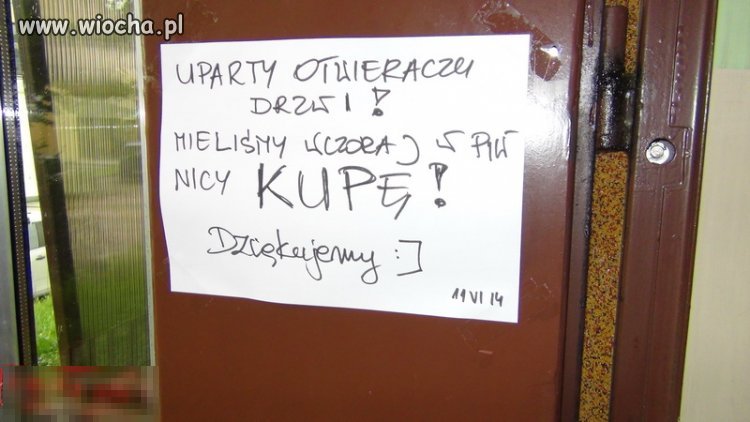 www.wiocha.pl
UPARTY OTWIERACZU
DRZWI!
MIELIŚMY WCZORAJ W PIW
NICY KUPĘ!
Dziękujemy :]
11 VI 14